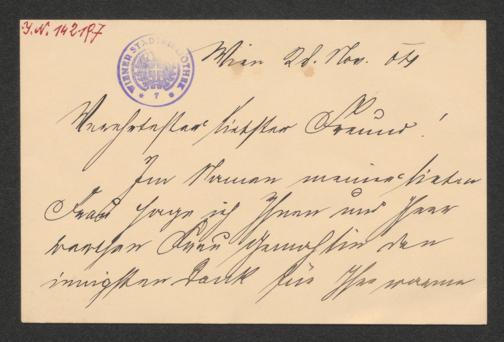 J.N. 142197
WIENER STADTBIBLIOTHEK
* 7 *
Wien 28. Nov. 04
Verehrtester liebster Freund!
Im Namen meiner lieben
Frau sage ich Ihnen und Ihrer
werthen Frau Gemahlin den
innigsten Dank für Ihre warme